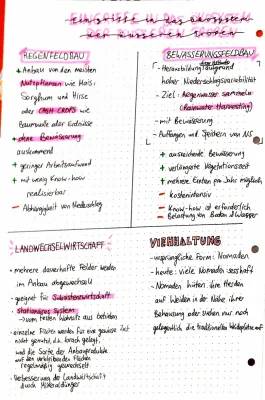 EINGRIFFE IN DAS ÖKOSYSTEM
DER ÄUSSEREN TROPEN
REGENFELDBAU
+ Anbau von den meisten
Nutzpflanzen wie Mais,
Sorghum und Hirse
oder CASH CROPS wie
Baumwolle oder Erdnüsse
+ ohne Bewässerung
auskommend
+ geringer Arbeitsaufwand
+ mit wenig Know-how
realisierbar
- Abhängigkeit von Niederschlag
BEWÄSSERUNGSFELDBAU
- Herausbildung aufgrund
hoher Niederschlagsvariabilität
- Ziel: Regenwasser sammeln
(Rainwater Harvesting)
- mit Bewässerung
- Auffangen und Speichern von NS
+ ausreichende Bewässerung
+ verlängerte Vegetationszeit
+ mehrere Ernten pro Jahr möglich
- kostenintensiv
- Know-how ist erforderlich
- Belastung von Boden & Wasser
LANDWECHSELWIRTSCHAFT
• mehrere dauerhafte Felder werden
im Anbau abgewechselt
• geeignet für Subsistenzwirtschaft
• stationäres System
→ vom festen Wohnsitz aus betrieben
• einzelne Flächen werden für eine gewisse Zeit
nicht genutzt, d.h. brach gelegt,
und die Sorte der Anbauprodukte
auf den verbleibenden Flächen
regelmäßig gewechselt
• Verbesserung der Landwirtschaft
durch Mineraldünger
VIEHHALTUNG
- ursprüngliche Form: Nomaden
- heute: viele Nomaden sesshaft
- Nomaden hüten ihre Herden
auf Weiden in der Nähe ihrer
Behausung oder ziehen nur noch
gelegentlich die traditionellen Weideplätze auf